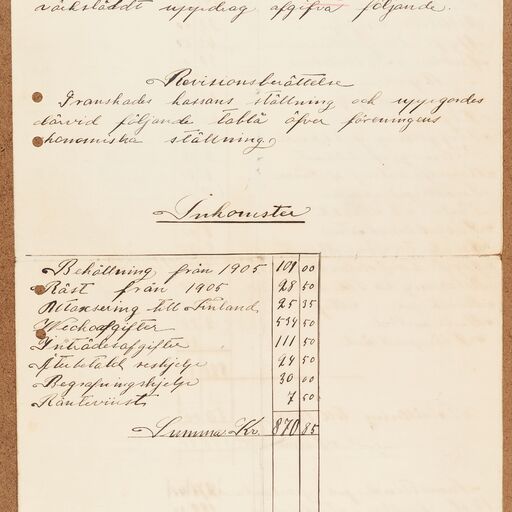 uppdrag afgifva följande.
Revisionsberättelse
Franskades kassans ställning och uppgjordes
därvid följande tablå öfver föreningens
ekonomiska ställning
Inkomster
Behållning från 1905 101 00
Räst från 1905 28 50
till Finland 25 35
Veckoafgifter 534 50
Inträdesafgifter 111 50
Återbetald reshjelp 24 50
Begrafningshjelp 30 00
Räntevinst 7 50
Summa Kr. 870 85